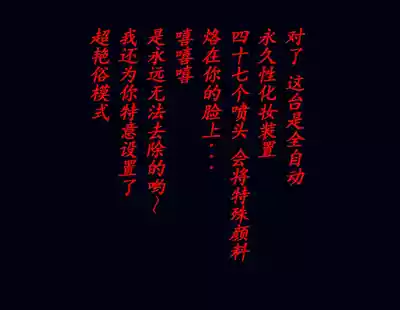 对了 这台是全自动
永久性化妆装置
四十七个喷头 会将特殊颜料
烙在你的脸上...
嘻嘻嘻
是永远无法去除的哟~
我还为你特意设置了
超艳俗模式